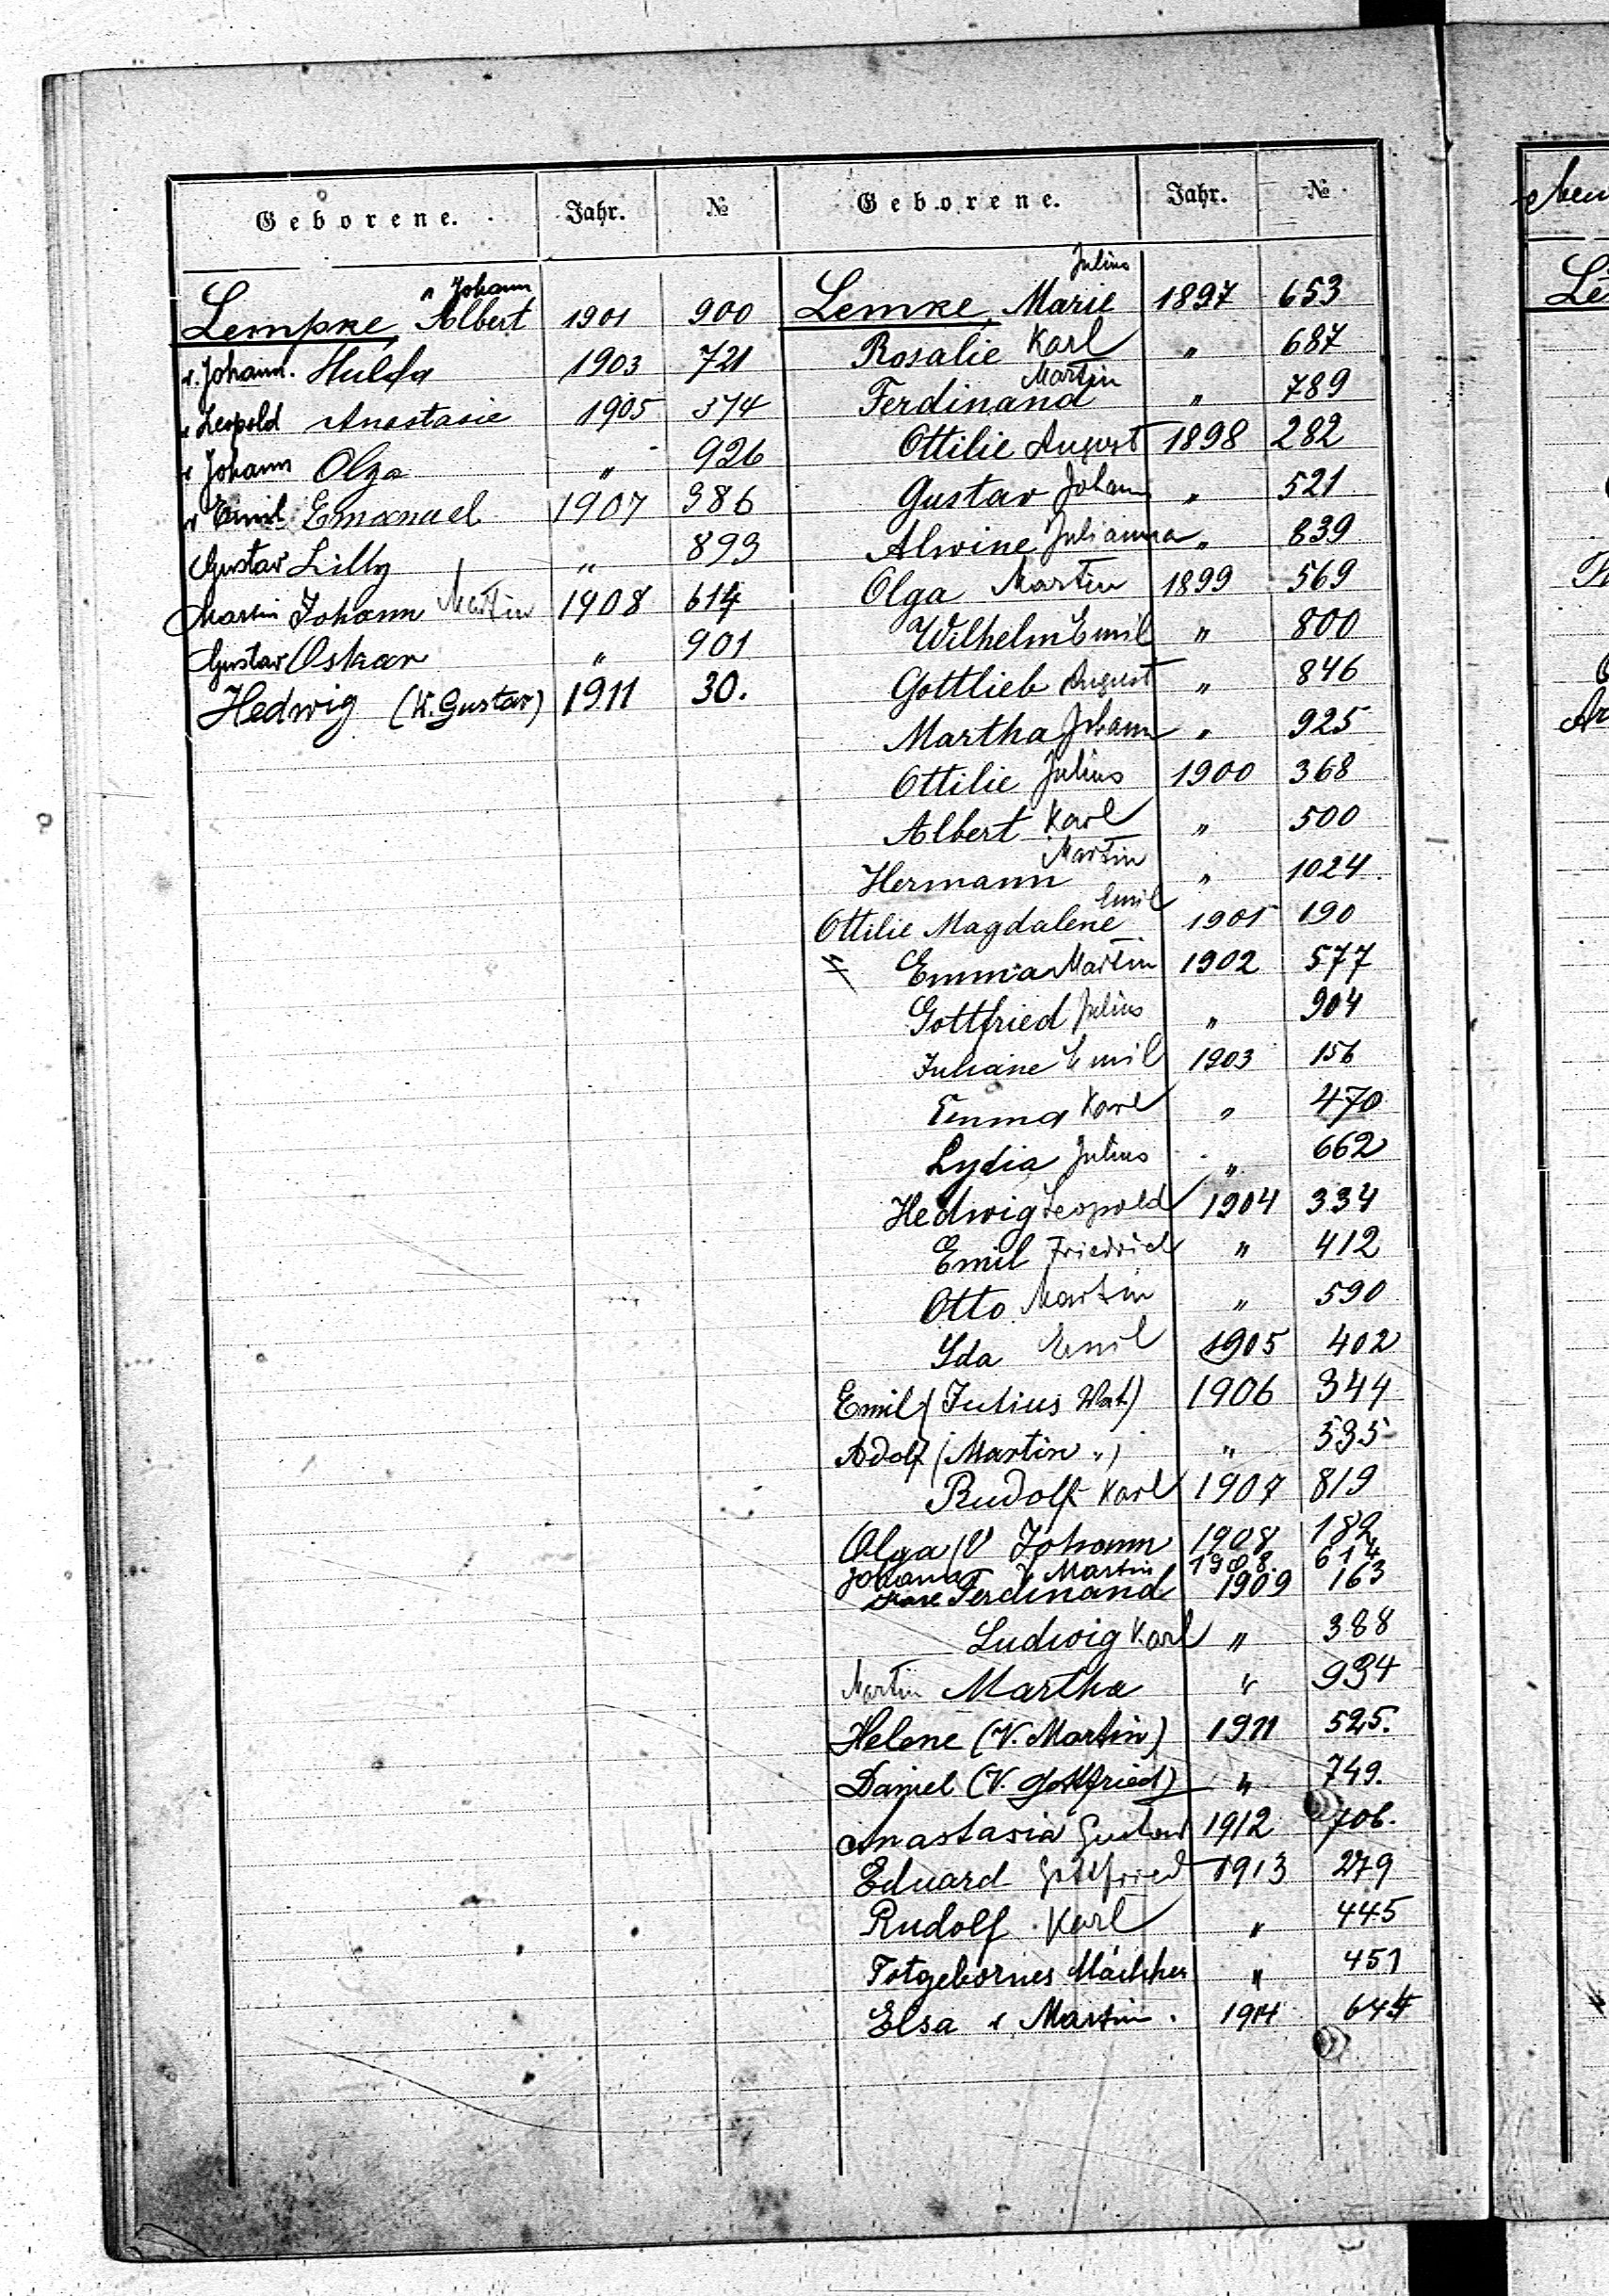 Geborene. Jahr. №
v Johann
Lempke, Albert 1901 900
v. Johann. Hulda 1903 721
v Leopold Anastasie 1905 374
v Johann Olga " 926
v Emil Emanuel 1907 386
Gustav Lilly " 893
Martin Johann Martin 1908 614
Gustav Oskar " 901
Hedwig (V. Gustav) 1911 30.
Geborene. Jahr. №
Julius
Lemke, Marie 1897 653
Rosalie Karl " 687
Martin
Ferdinand " 789
Ottilie August 1898 282
Gustav Johann " 521
Alwine Julianna " 839
Olga Martin 1899 569
Wilhelm Emil " 800
Gottlieb August " 846
Martha Johann " 925
Ottilie Julius 1900 368
Albert Karl " 500
Martin
Hermann " 1024.
Emil
Ottilie Magdalene 1901 190
Emma Martin 1902 577
Gottfried Julius " 904
Juliane Emil 1903 156
Emma Karl " 470
Lydia Julius " 662
Hedwig Leopold 1904 334
Emil Friedrich " 412
Otto Martin " 590
Ida Emil 1905 402
Emil (Julius Vat.) 1906 344
Adolf (Martin ") " 535
Rudolf Karl 1907 819
Olga (V Johann 1908 182
Johann V Martin 1908. 614
Karl Ferdinand 1909 163
Ludwig Karl " 388
Martin Martha " 934
Helene (V. Martin) 1911 525.
Daniel (V. Gottfried) " 749.
Anastasia Gustav 1912 706.
Eduard Gottfried 1913 279
Rudolf Karl " 445
Totgebornes Mädchen " 451
Elsa v Martin. 1914 644
Le